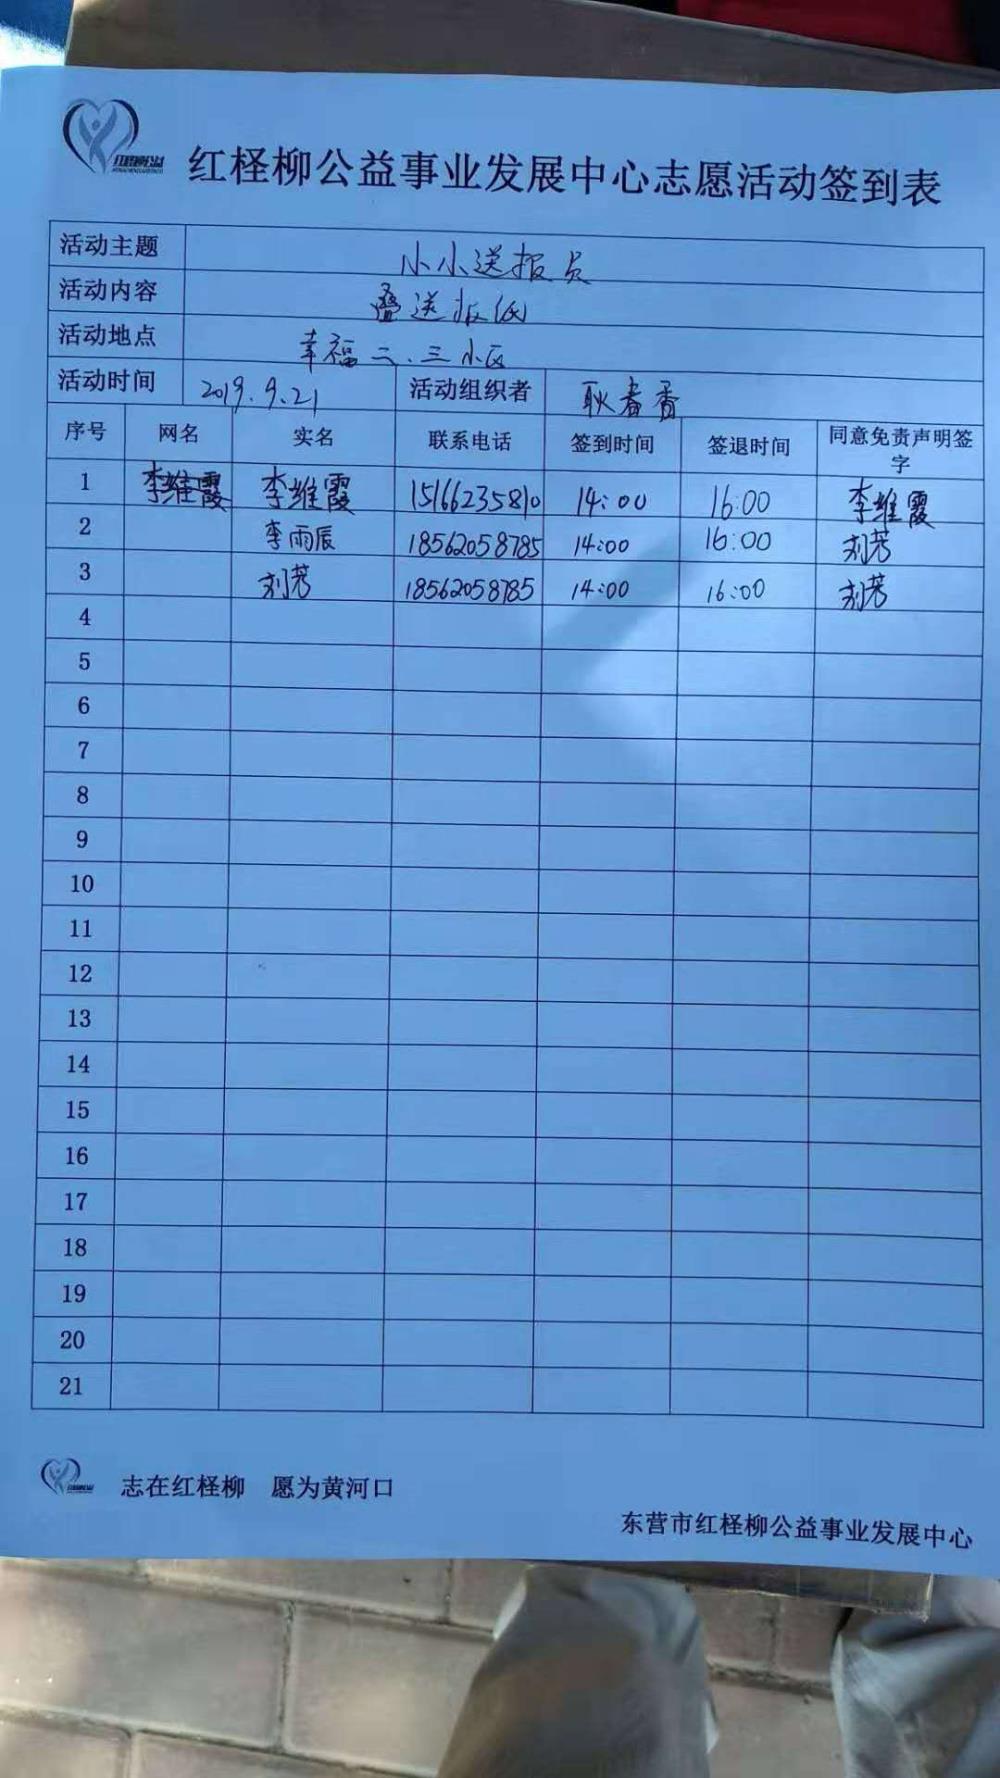 红柽柳公益
红柽柳公益事业发展中心志愿活动签到表
活动主题 小小送报员
活动内容 叠送报纸
活动地点 幸福二、三小区
活动时间 2019.9.21 活动组织者 耿春香
序号 网名 实名 联系电话 签到时间 签退时间 同意免责声明签字
1 李维霞 李维霞 15166235810 14:00 16:00 李维霞
2 李雨辰 18562058785 14:00 16:00 刘芳
3 刘芳 18562058785 14:00 16:00 刘芳
4
5
6
7
8
9
10
11
12
13
14
15
16
17
18
19
20
21
志在红柽柳 愿为黄河口
东营市红柽柳公益事业发展中心